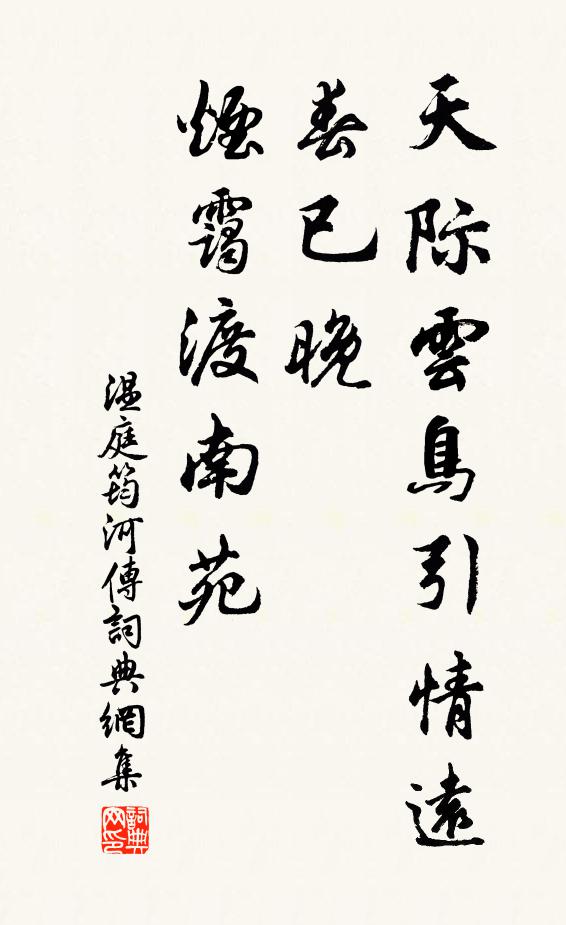 天際雲鳥引情遠
春已晚
煙靄渡南苑
溫庭筠河傳詞典網集
詞典网印